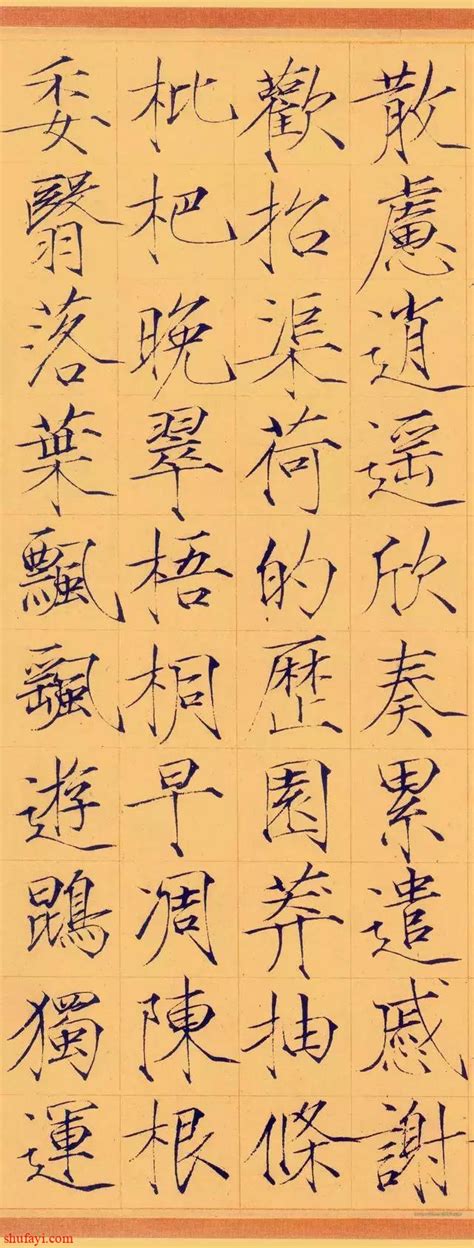 散慮逍遥欣奏累遣慼謝
歡招渠荷的歷園莽抽條
枇杷晚翠梧桐早凋陳根
委翳落葉飄飖遊鵾獨運
shufayi.com